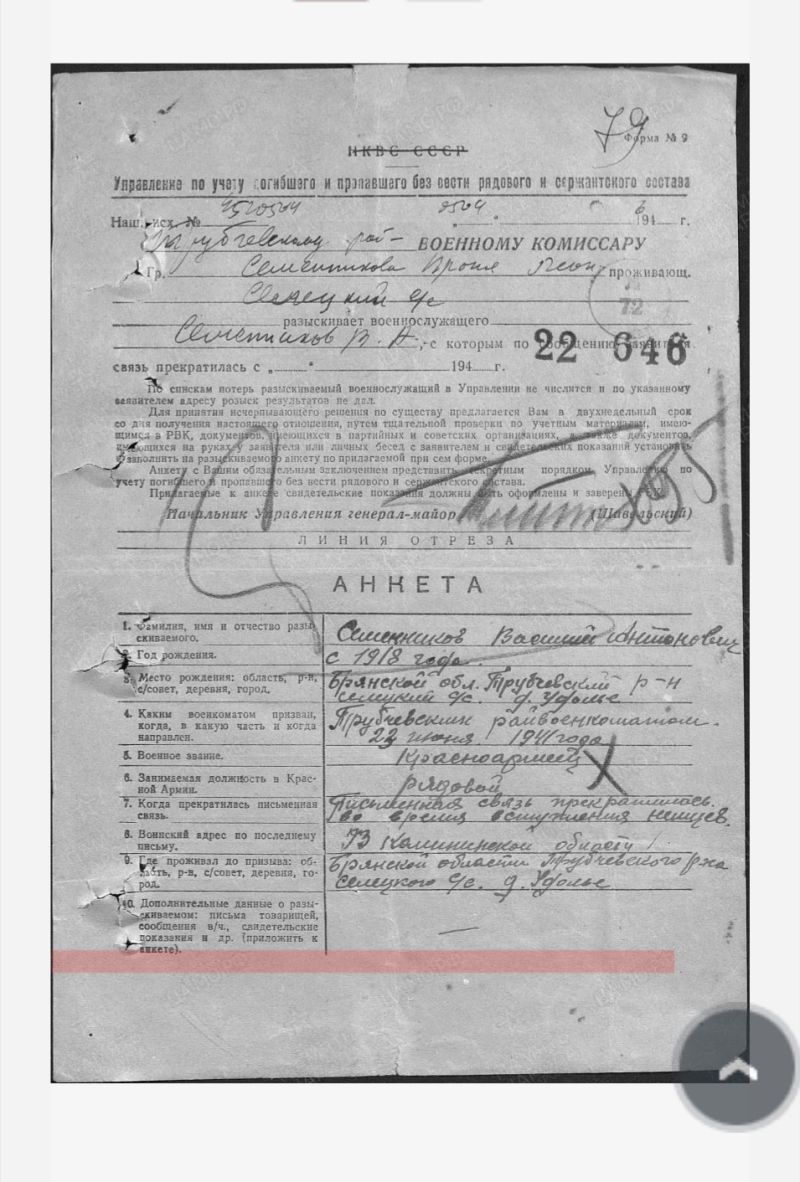 79
Форма № 9
НКВС СССР
Управление по учету погибшего и пропавшего без вести рядового и сержантского состава
Наш. исх. № 9504 6 194 г.
Трубчевскому рай- ВОЕННОМУ КОМИССАРУ
Гр. Семенникова проживающ.
Селецкий с/с
72
разыскивает военнослужащего
Семенников В. А., с которым по сообщению заявителя
22 646
связь прекратилась с „ “ 194 г.
По спискам потерь разыскиваемый военнослужащий в Управлении не числится и по указанному
заявителем адресу розыск результатов не дал.
Для принятия исчерпывающего решения по существу предлагается Вам в двухнедельный срок
со дня получения настоящего отношения, путем тщательной проверки по учетным материалам, имею-
щимся в РВК, документов, имеющихся в партийных и советских организациях, а также документов,
имеющихся на руках у заявителя или личных бесед с заявителем и свидетельских показаний установить
и заполнить на разыскиваемого анкету по прилагаемой при сем форме.
Анкету с Вашим обязательным заключением представить секретным порядком Управлению по
учету погибшего и пропавшего без вести рядового и сержантского состава.
Прилагаемые к анкете свидетельские показания должны быть оформлены и заверены
Начальник Управления генерал-майор (Шавельский)
ЛИНИЯ ОТРЕЗА
АНКЕТА
1. Фамилия, имя и отчество разы-
скиваемого.
Семенников Василий Антонович
2. Год рождения.
с 1918 года.
3. Место рождения: область, р-н,
с/совет, деревня, город.
Брянской обл. Трубчевский р-н
селецкий с/с. д. Удолье
4. Каким военкоматом призван,
когда, в какую часть и когда
направлен.
Трубчевским райвоенкоматом.
23 июня 1941 года
5. Военное звание.
Красноармеец
6. Занимаемая должность в Крас-
ной Армии.
рядовой
7. Когда прекратилась письменная
связь.
Письменная связь прекратилась.
во время вступления немцев.
8. Воинский адрес по последнему
письму.
Из Калининской области
9. Где проживал до призыва: об-
ласть, р-н, с/совет, деревня, го-
род.
Брянской области Трубчевского р-на
селецкого с/с. д. Удолье
10. Дополнительные данные о разы-
скиваемом: письма товарищей,
сообщения в/ч., свидетельские
показания и др. (приложить к
анкете).
—